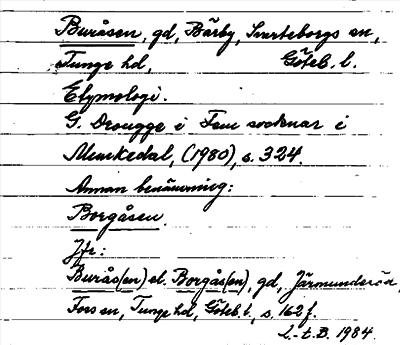 Buråsen, gd, Bärby, Svarteborgs sn,
Tunge hd, Göteb. l.
Etymologi.
G. Drougge i Fem socknar i
Munkedal, (1980), s. 324.
Annan benämning:
Borgåsen.
Jfr:
Burås(en) el. Borgås(en), gd, Järmunderöd,
Foss sn, Tunge hd, Göteb. l., s. 162 f.
L.-t. B. 1984.